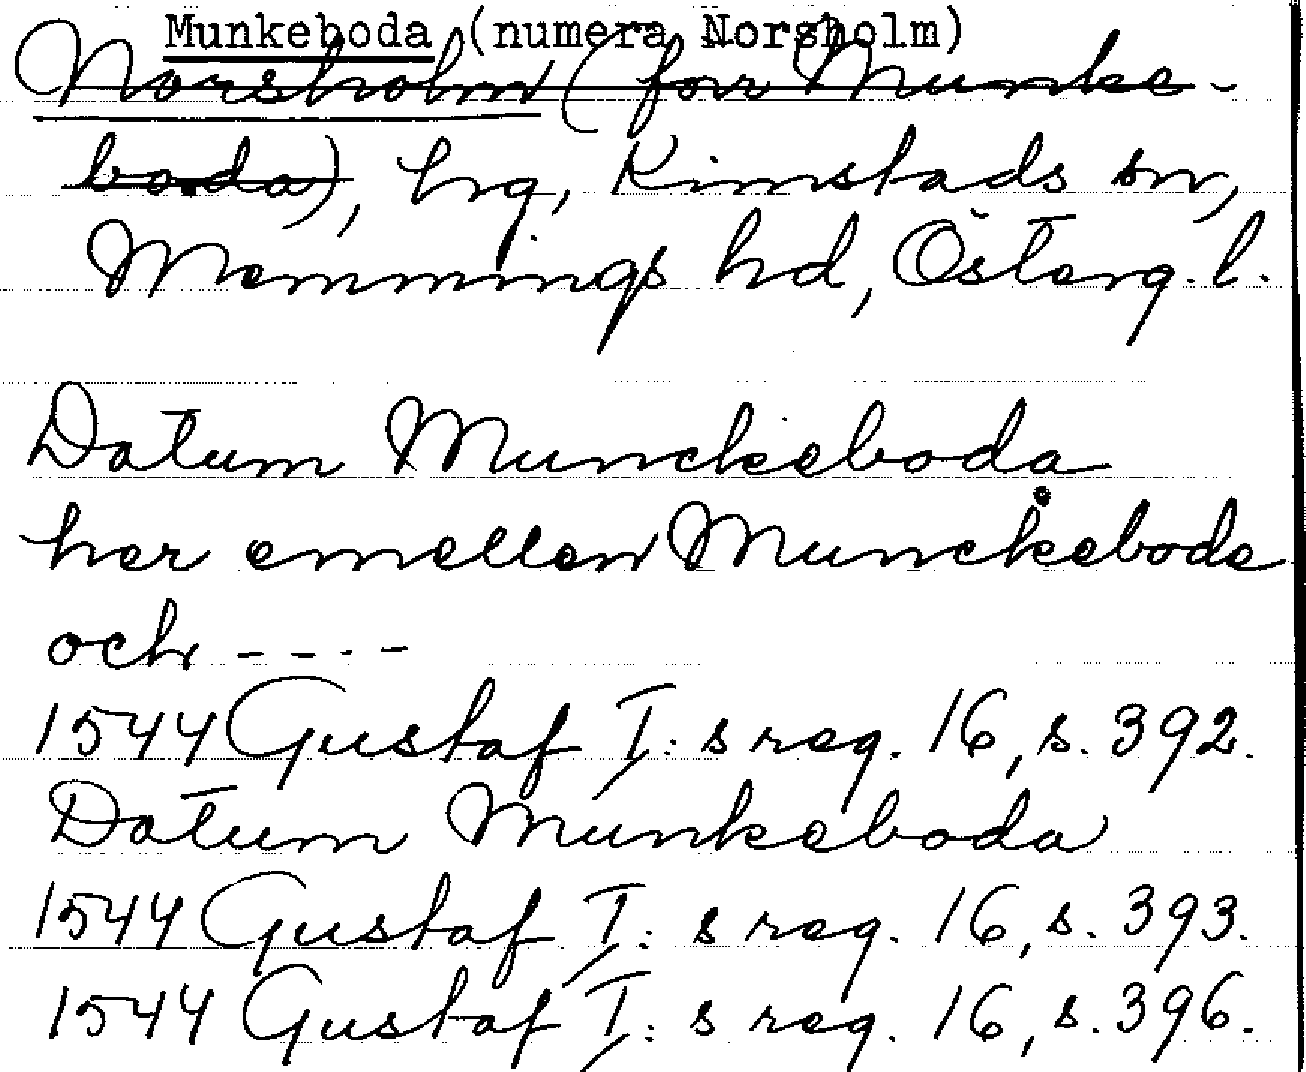 Munkeboda (numera Norsholm)
Norsholm (förr Munke-
boda), hrg, Kimstads sn,
Memmings hd, Österg. l.
Datum Munckeboda
her emellen Munckebode
och ----
1544 Gustaf I: s reg. 16, s. 392.
Datum Munkeboda
1544 Gustaf I: s reg. 16, s. 393.
1544 Gustaf I: s reg. 16, s. 396.